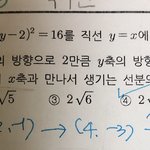 y-2)²=16를 직선 y=x에
의 방향으로 2만큼 y축의 방향
x축과 만나서 생기는 선분으
√5 ③ 2√6 ④ 2√
, -1) → (4, -3)